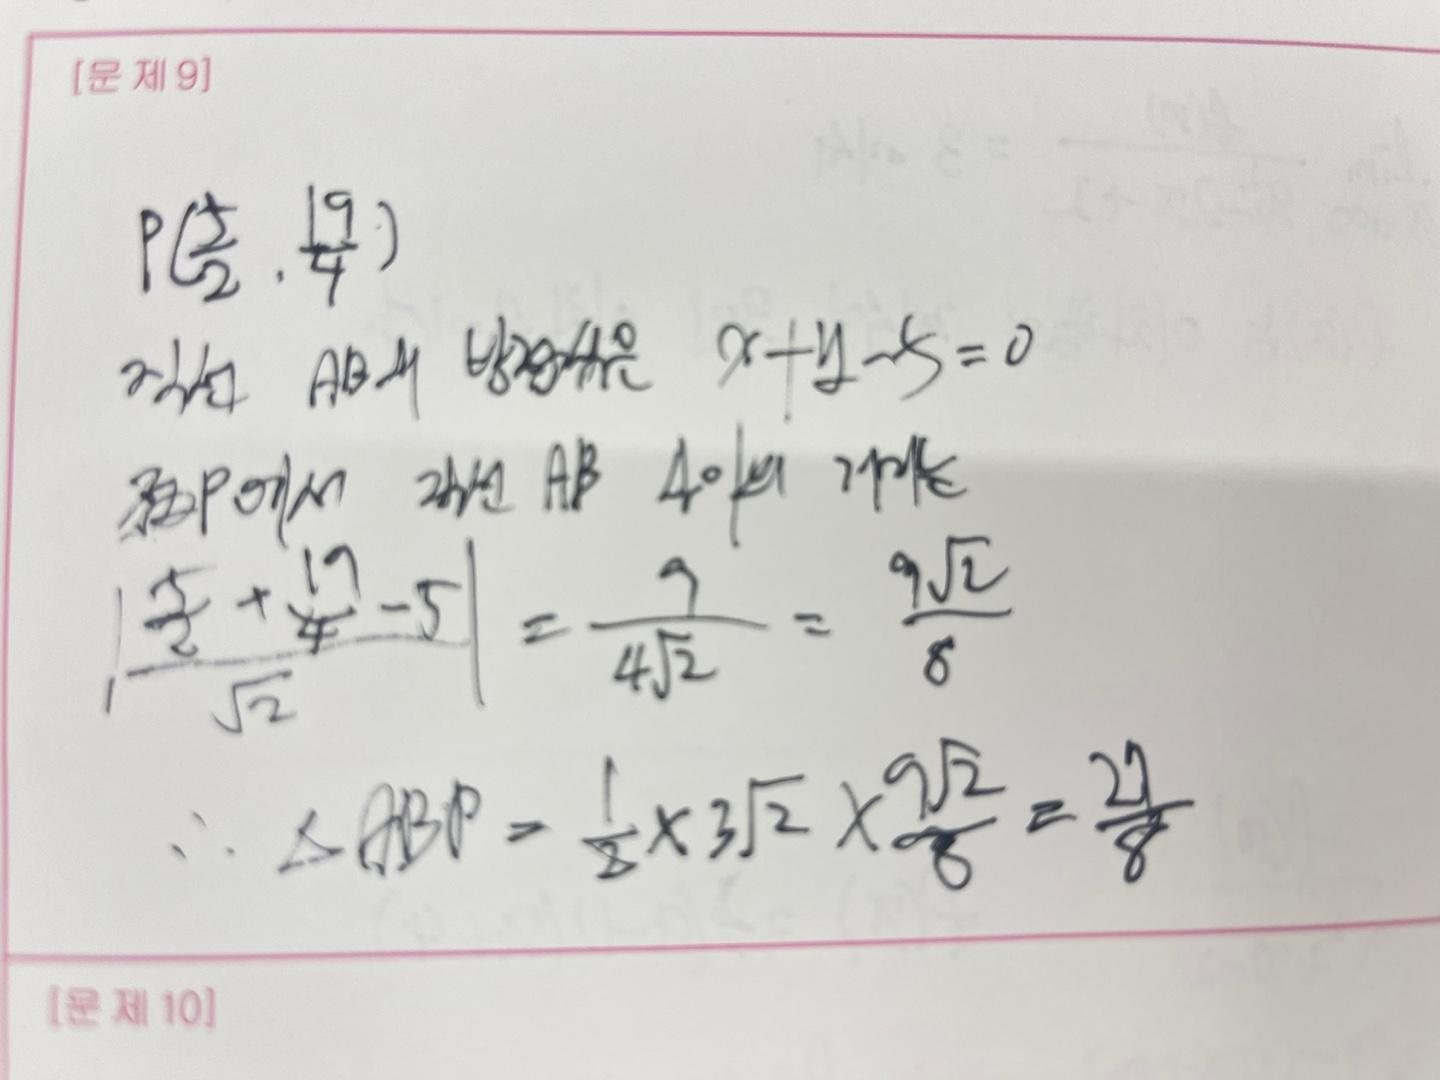 [문 제 9]
P(5/2, 19/4)
직선 AB의 방정식은 x+y-5=0
점P에서 직선 AB 사이의 거리는
|5/2 + 19/4 - 5| / √2 = 9/4√2 = 9√2/8
∴ △ABP = 1/2 × 3√2 × 9√2/8 = 27/8
[문 제 10]